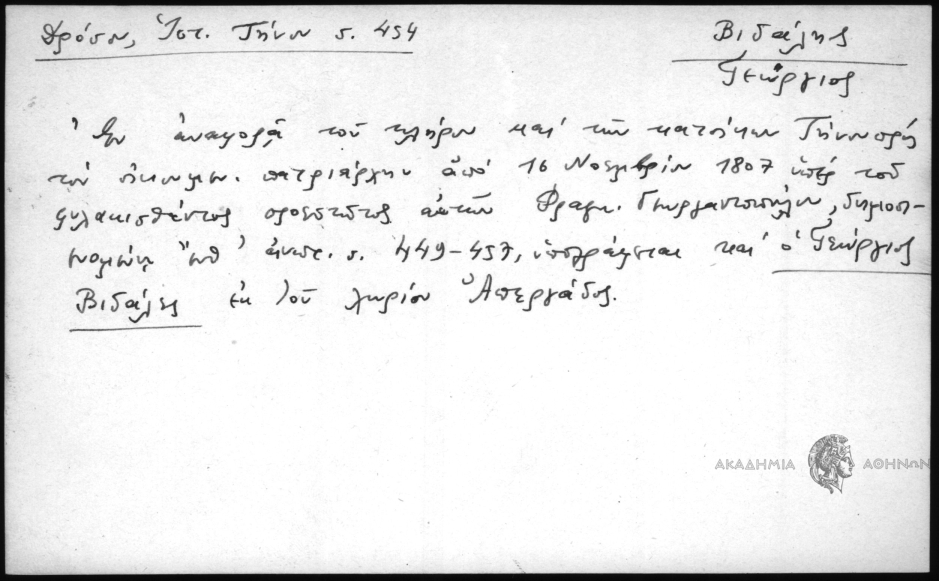 Δρόσου, Ἱστ. Τήνου σ. 454
Βιδάλης
Γεώργιος
Ἐν ἀναφορᾷ τοῦ κλήρου καὶ τῶν κατοίκων Τήνου πρὸς
τὸν οἰκουμεν. πατριάρχην ἀπὸ 16 Νοεμβρίου 1807 ὑπὲρ τοῦ
φυλακισθέντος προεστῶτος αὐτῶν Φραγκ. Γεωργαντοπούλου, δημοσι-
ἀνωτ. σ. 449-457, ὑπογράφεται καὶ ὁ Γεώργιος
Βιδάλης ἐκ τοῦ χωρίου Ἀπεργάδος.
ΑΚΑΔΗΜΙΑ ΑΘΗΝΩΝ